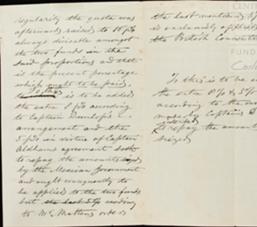 regularity the quota was
afterwards raised to 10 p%
always divisible amongst
the two funds in the
said proportions and that
is the present percentage
which ought to be paid.
is to be added
the extra 1 p% according
to Captain Dunlop's
arrangement and the
5 p% in virtue of Captain
Aldham's agreement both
to repay the amounts
by the Mexican Government
and ought consequently to
be applied to the two funds
but according
to Mr Mathew's order
the last mentioned
is exclusively applied
the British Convention
If this is to be
the extra 1% & 5%
according to the
made by Captains D
to repay the amounts
seized